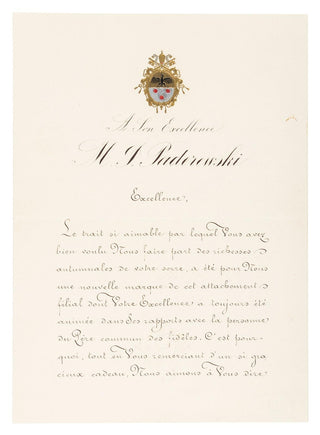 A Son Excellence
M I. Paderewski
Excellence,
Le trait si aimable par lequel Vous avez
bien voulu Nous faire part des richesses
automnales de votre serre, a été pour Nous
une nouvelle marque de cet attachement
filial dont Votre Excellence a toujours été
animée dans Ses rapports avec la personne
du Père commun des fidèles. C'est pour-
quoi, tout en Vous remerciant d'un si gra
cieux cadeau, Nous aimons à Vous dire